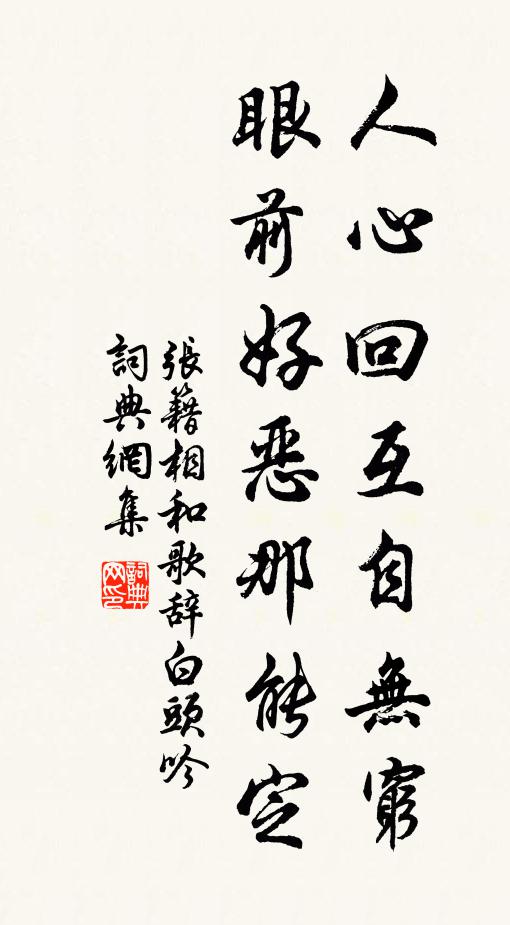 人心回互自無窮
眼前好惡那能定
張籍相和歌辞白頭吟
詞典網集
詞典網印